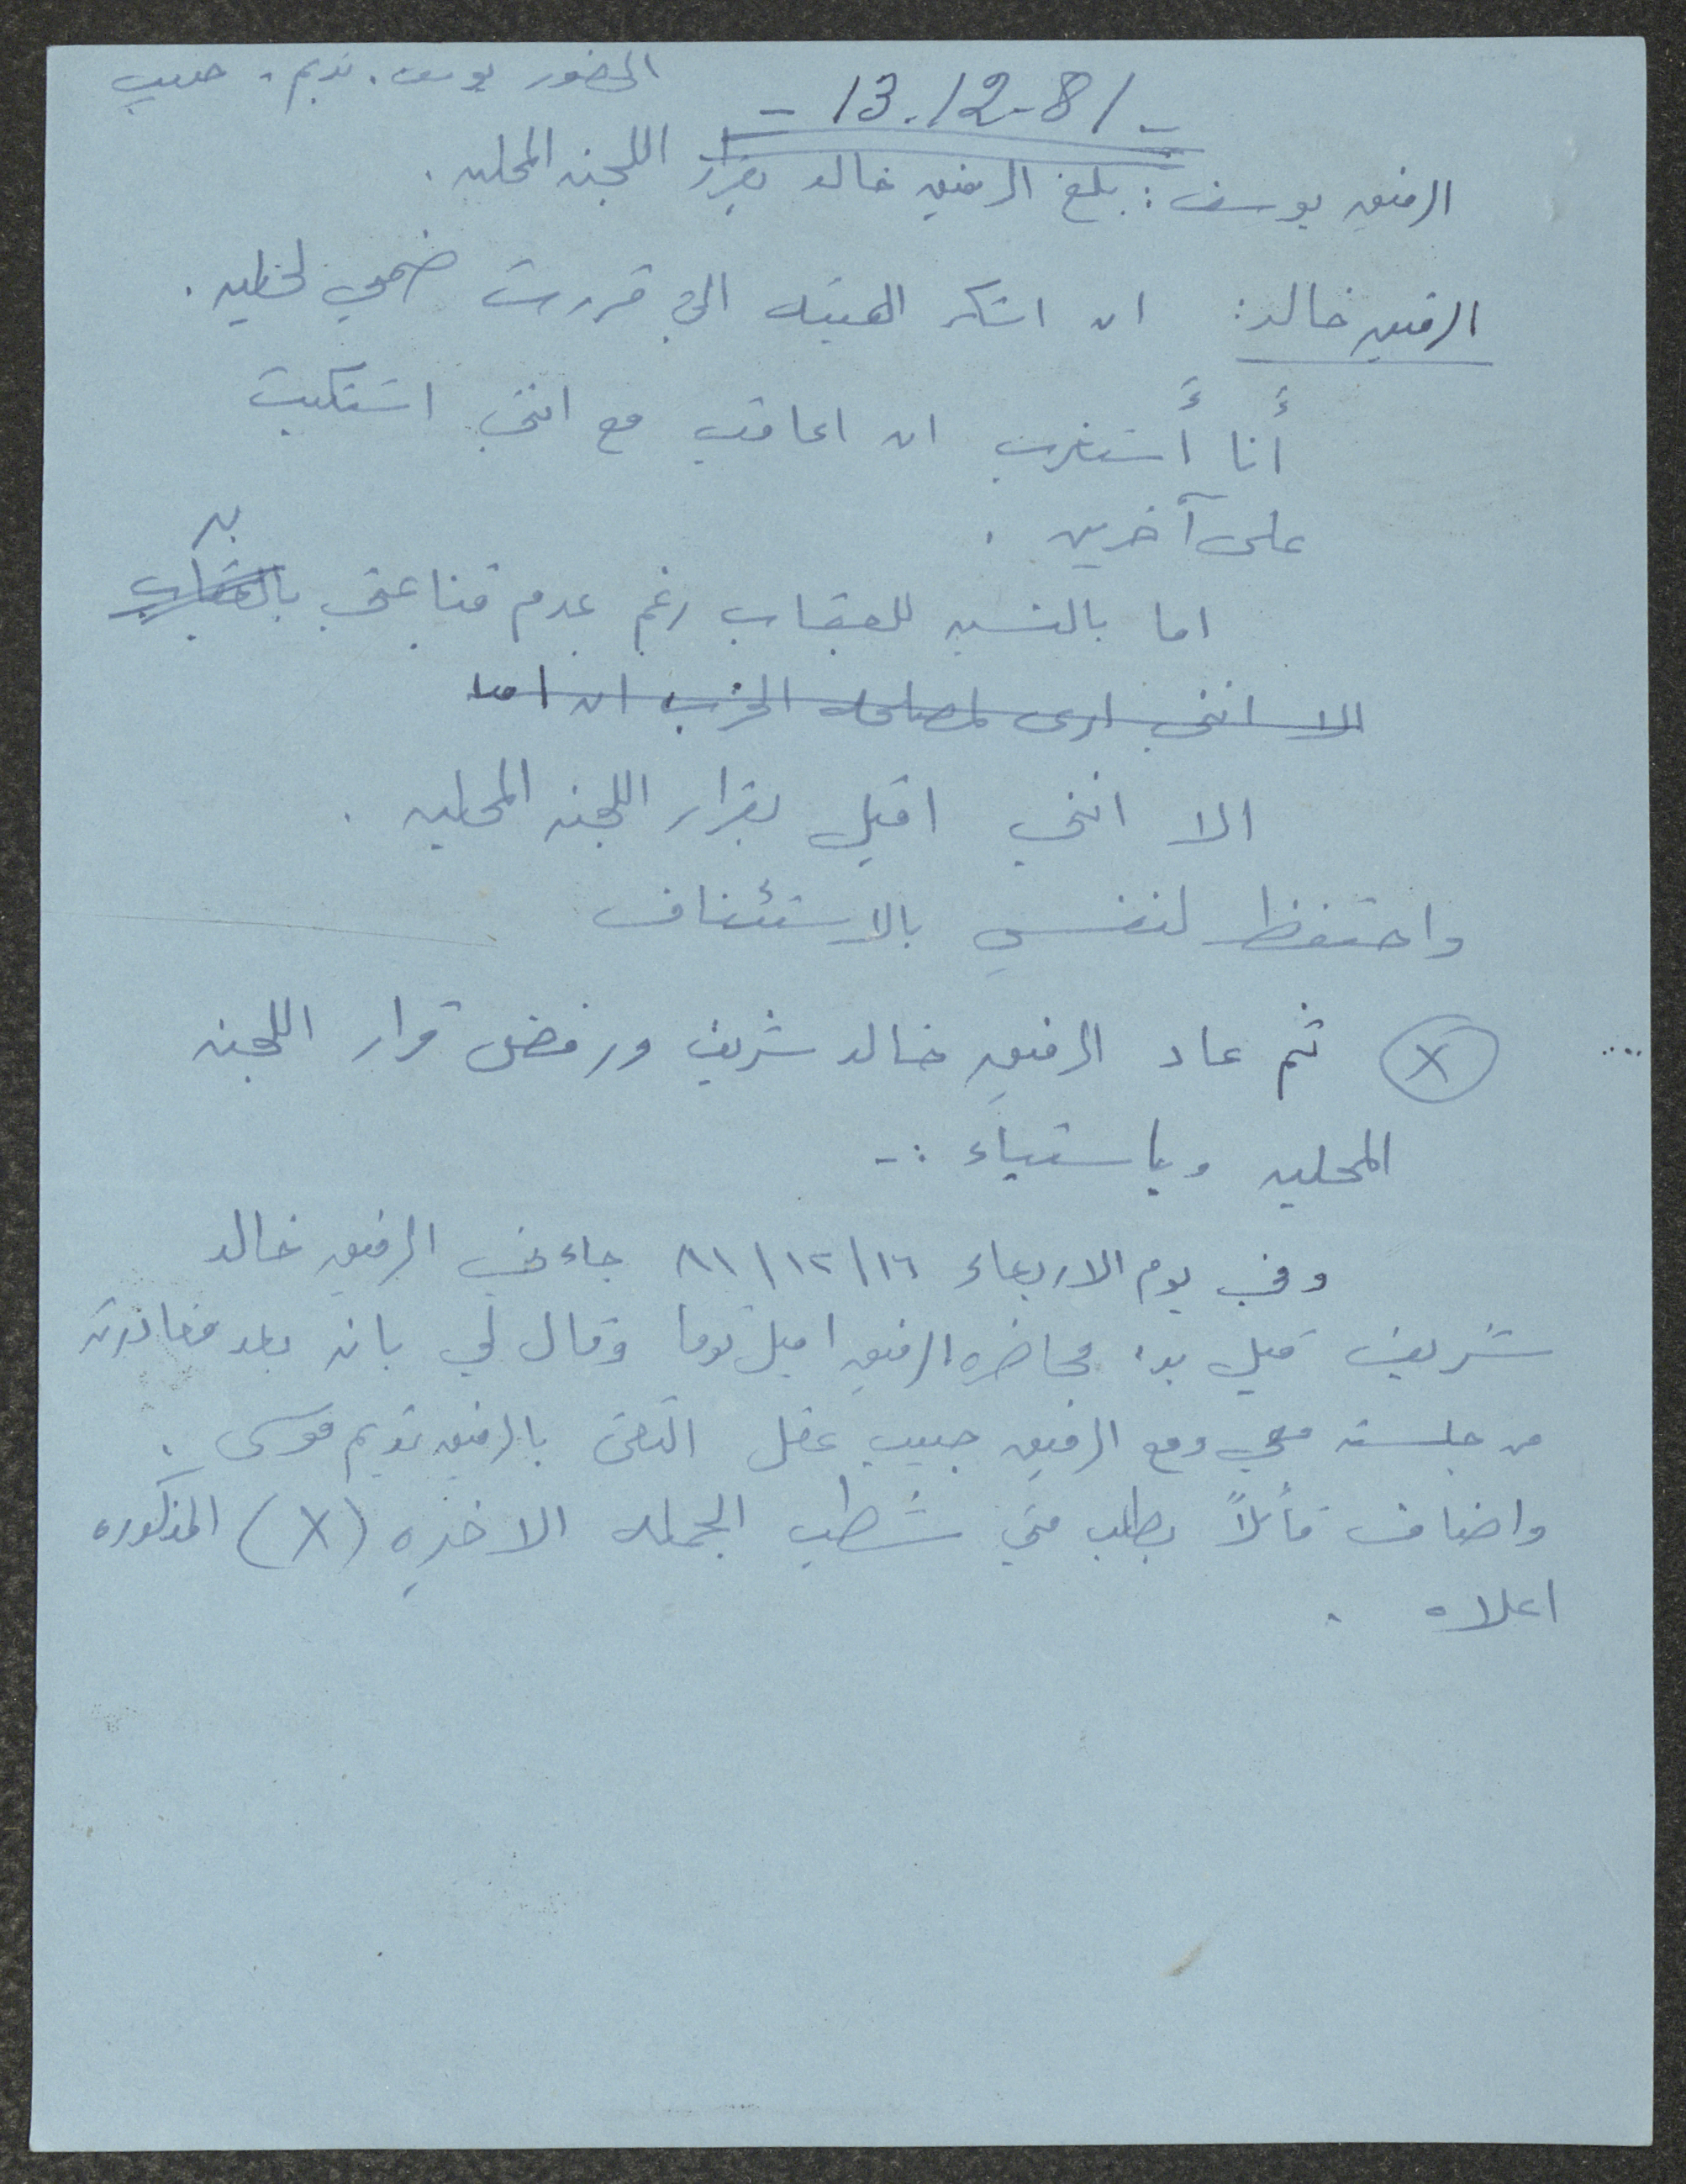 الحضور يوسف. نديم. حبيب
- 13.12-81 -
الرفيق يوسف: بلغ الرفيق خالد بقرار اللجنه المحليه.
الرفيق خالد: ان اشكر الهيئه التي قررت ضمي لخليه.
أنا أستغرب ان اعاقب مع انني اشتكيت
على آخرين.
اما بالنسبه للعقاب رغم عدم قناعتي بالعقاب به
الا انني ارى لمصلحه الحزب ان
الا انني اقبل بقرار اللجنه المحليه.
واحتفظ لنفسي بالاستئناف
(X) ثم عاد الرفيق خالد شريف ورفض قرار اللجنه
المحليه وباستياء :-
وفي يوم الاربعاء ١٦/١٢/٨١ جاءني الرفيق خالد
شريف قبل بدء محاضره الرفيق اميل توما وقال لي بانه بعد مغادرته
من جلسته معي ومع الرفيق حبيب عقل التقى بالرفيق نديم موسى.
واضاف قائلاً يطلب مني شطب الجمله الاخيره (X) المذكوره
اعلاه.